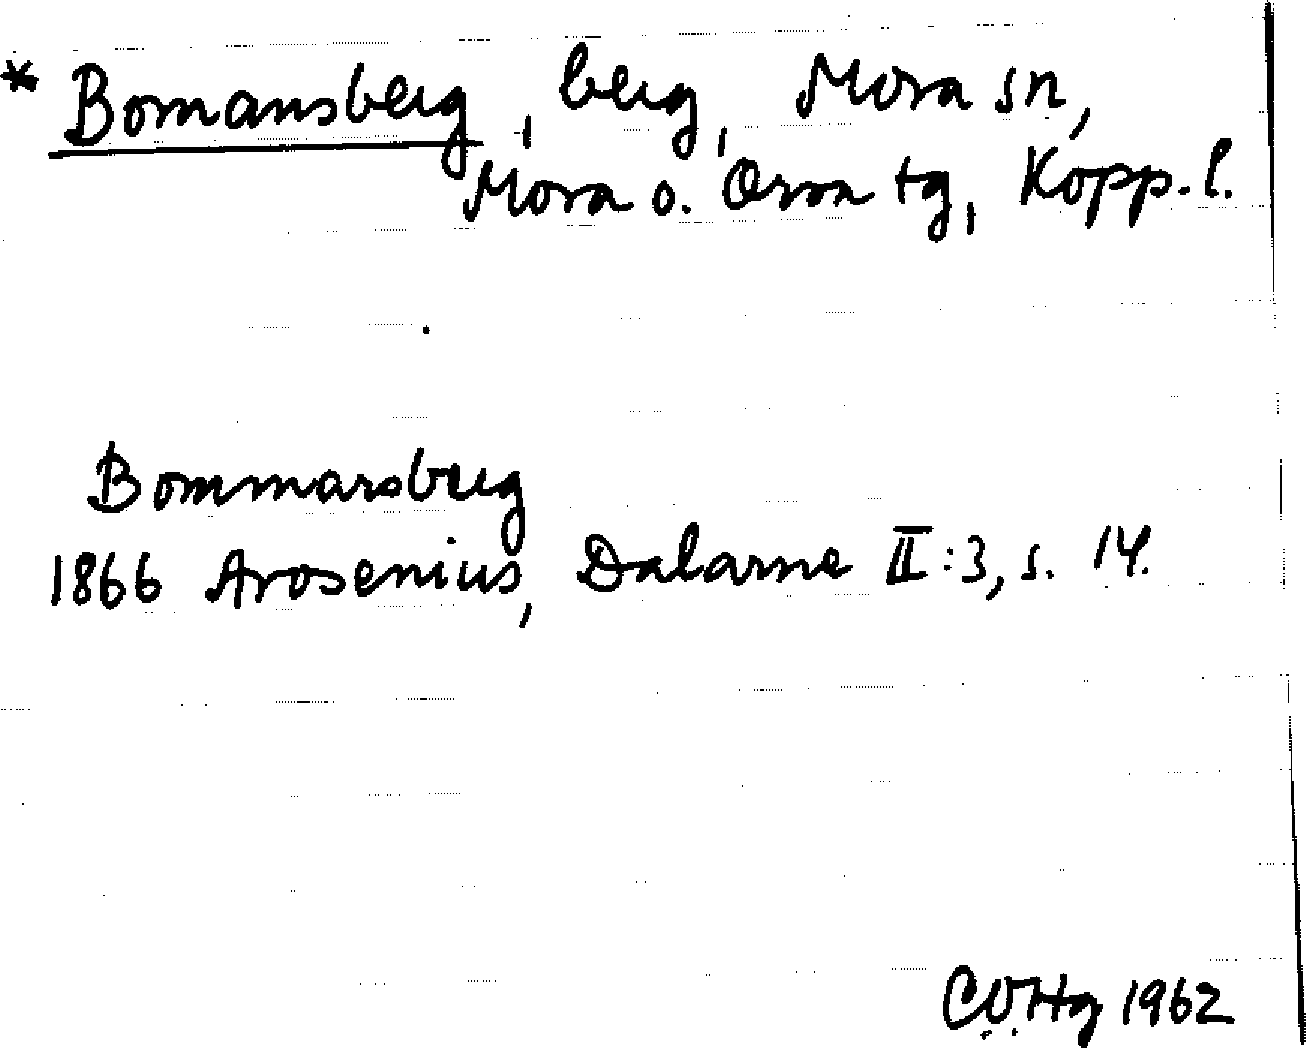 * Bomansberg, berg, Mora sn,
Mora o. Orsa tg, Kopp. l.
Bommarsberg
1866 Arosenius, Dalarne II:3, s. 14.
1962